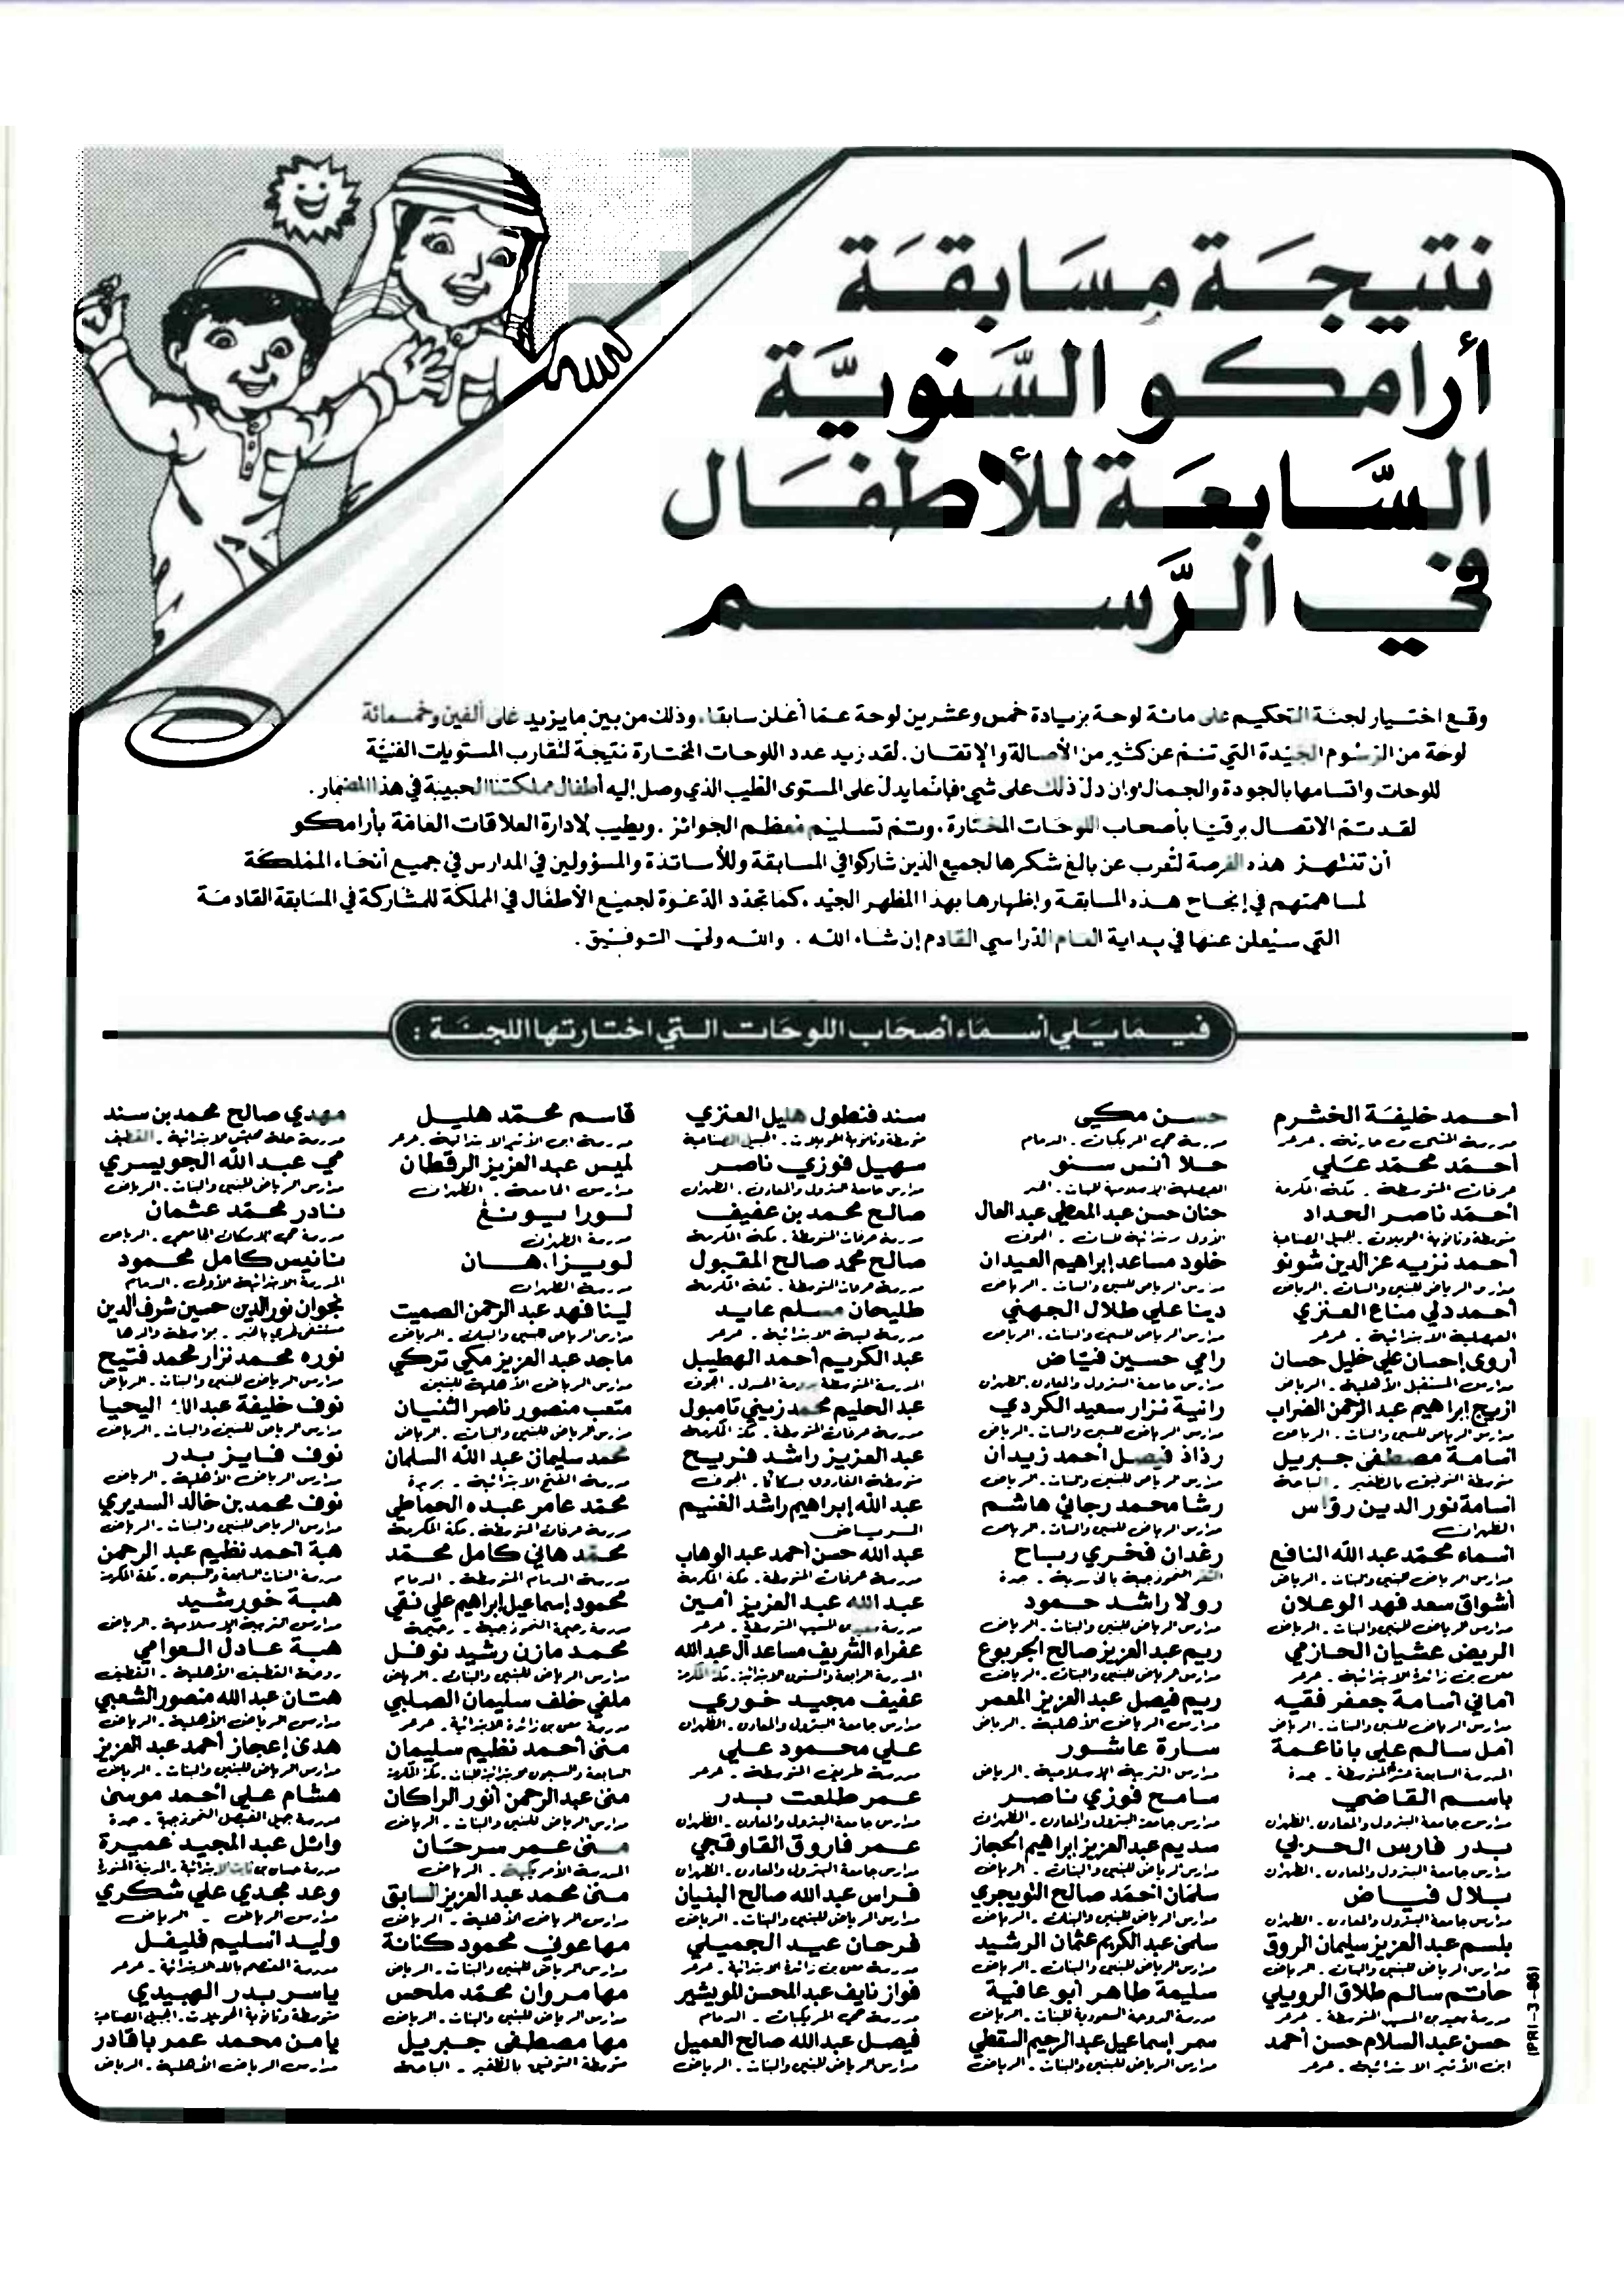 نتيجة مسابقة
أرامكو السنوية
السابعة للأطفال
في الرسم
وقع اختيار لجنة التحكيم على مائة لوحة بزيادة خمس وعشرين لوحة عما أعلن سابقا. وذلك من بين ما يزيد على ألفين وخمسمائة
لوحة من الرسوم الجيدة التي تنم عن كثير من الأصالة والإتقان. لقد زيد عدد اللوحات المختارة نتيجة لتقارب المستويات الفنية
للوحات واتسامها بالجودة والجمال وان دل ذلك على شيء فإنما يدل على المستوى الطيب الذي وصل إليه أطفال مملكتنا الحبيبة في هذا المضمار.
لقد تم الاتصال برقيا بأصحاب اللوحات المختارة. وتم تسليم معظم الجوائز. ويطيب لادارة العلاقات العامة بأرامكو
أن تنتهز هذه الفرصة لتعرب عن بالغ شكرها لجميع الذين شاركوا في المسابقة وللأساتذة والمسؤولين في المدارس في جميع أنحاء المملكة
لمساهمتهم في إنجاح هذه المسابقة وإظهارها بهذا المظهر الجيد. كما تجدد الدعوة لجميع الأطفال في المملكة للمشاركة في المسابقة القادمة
التي سيعلن عنها في بداية العام الدراسي القادم إن شاء الله. والله ولي التوفيق.
فيما يلي أسماء أصحاب اللوحات التي اختارتها اللجنة:
أحمد خليفة الخشرم
مدرسة المثنى بن حارثة. عرعر
أحمد محمد علي
عرفات المتوسطة. مكة المكرمة
أحمد ناصر الحداد
متوسطة وثانوية الحويلات. الجبيل الصناعية
أحمد نزيه عز الدين شونو
مدارس الرياض للبنين والبنات. الرياض
أحمد دلي مناع العنزي
الفيصلية الابتدائية. عرعر
أروى إحسان علي خليل حسان
مدارس المستقبل الأهلية. الرياض
اريج إبراهيم عبد الرحمن الضراب
مدارس الرياض للبنين والبنات. الرياض
اسامة مصطفى جبريل
متوسطة التوفيق بالظفير. الباحة
اسامة نور الدين رؤاس
الظهران
اسماء محمد عبد الله النافع
مدارس الرياض للبنين والبنات. الرياض
أشواق سعد فهد الوعلان
مدارس الرياض للبنين والبنات. الرياض
الريض عشيان الحازمي
معن بن زائدة الابتدائية. عرعر
اماني اسامة جعفر فقيه
مدارس الرياض للبنين والبنات. الرياض
امل سالم علي باناعمة
المدرسة السابعة عشرة المتوسطة. جدة
باسم القاضي
مدارس جامعة البترول والمعادن. الظهران
بدر فارس الحربي
مدارس جامعة البترول والمعادن. الظهران
بلال فياض
مدارس جامعة البترول والمعادن. الظهران
بلسم عبد العزيز سليمان الروق
مدارس الرياض للبنين والبنات. الرياض
حاتم سالم طلاق الرويلي
مدرسة سعيد بن المسيب المتوسطة. عرعر
حسن عبد السلام حسن أحمد
ابن الأثير الابتدائية. عرعر
حسن مكي
مدرسة حي المريكبات. الدمام
حلا أنس سنو
الفيصلية الإسلامية للبنات. الخبر
حنان حسن عبد المعطي عبد العال
الأولى الابتدائية للبنات. الجوف
خلود مساعد إبراهيم العيدان
مدارس الرياض للبنين والبنات. الرياض
دينا علي طلال الجهني
مدارس الرياض للبنين والبنات. الرياض
رامي حسين فياض
مدارس جامعة البترول والمعادن. الظهران
رانية نزار سعيد الكردي
مدارس الرياض للبنين والبنات. الرياض
رذاذ فيصل أحمد زيدان
مدارس الرياض للبنين والبنات. الرياض
رشا محمد رجائي هاشم
مدارس الرياض للبنين والبنات. الرياض
رغدان فخري رباح
الثغر النموذجية. جدة
رولا راشد حمود
مدارس الرياض للبنين والبنات. الرياض
ريم عبد العزيز صالح الجربوع
مدارس الرياض للبنين والبنات. الرياض
ريم فيصل عبد العزيز المعمر
مدارس الرياض الأهلية. الرياض
سارة عاشور
مدارس التربية الإسلامية. الرياض
سامح فوزي ناصر
مدارس جامعة البترول والمعادن. الظهران
سديم عبد العزيز إبراهيم الحجاز
مدارس الرياض للبنين والبنات. الرياض
سلمان أحمد صالح التويجري
مدارس الرياض للبنين والبنات. الرياض
سلمى عبد الكريم عثمان الرشيد
مدارس الرياض للبنين والبنات. الرياض
سليمة طاهر أبو عافية
مدرسة الروحة السعودية للبنات. الرياض
سمر إسماعيل عبد الرحيم السقطي
مدارس الرياض للبنين والبنات. الرياض
سند فنطول هليل العنزي
متوسطة وثانوية الحويلات. الجبيل الصناعية
سهيل فوزي ناصر
مدارس جامعة البترول والمعادن. الظهران
صالح محمد بن عفيف
مدرسة عرفات المتوسطة. مكة المكرمة
صالح محمد صالح المقبول
مدرسة عرفات المتوسطة. مكة المكرمة
طليحان مسلم عايد
مدرسة الابتدائية. عرعر
عبد الكريم أحمد الهطيل
المدرسة المتوسطة. الجوف
عبد الحليم محمد زيني تامبول
مدرسة عرفات المتوسطة. مكة المكرمة
عبد العزيز راشد فريح
متوسطة الفاروق بسكاكا. الجوف
عبد الله إبراهيم راشد الغنيم
الرياض
عبد الله حسن أحمد عبد الوهاب
مدرسة عرفات المتوسطة. مكة المكرمة
عبد الله عبد العزيز أمين
مدرسة المسيب المتوسطة. عرعر
عفراء الشريف مساعد آل عبد الله
المدرسة الرابعة والستون الابتدائية. مكة المكرمة
عفيف مجيد خوري
مدارس جامعة البترول والمعادن. الظهران
علي محمود علي
مدرسة طريف المتوسطة. عرعر
عمر طلعت بدر
مدارس جامعة البترول والمعادن. الظهران
عمر فاروق القاوقجي
مدارس جامعة البترول والمعادن. الظهران
فراس عبد الله صالح البنيان
مدارس الرياض للبنين والبنات. الرياض
فرحان عيد الجميلي
مدرسة معن بن زائدة الابتدائية. عرعر
فواز نايف عبد المحسن المويشير
مدرسة حي المريكبات. الدمام
فيصل عبد الله صالح العميل
مدارس الرياض للبنين والبنات. الرياض
قاسم محمد هليل
مدرسة ابن الأثير الابتدائية. عرعر
لميس عبد العزيز الرقطان
مدارس الجامعة. الظهران
لورا يونغ
مدرسة الظهران
لويزا. هان
مدرسة الظهران
لينا فهد عبد الرحمن الصميت
مدارس الرياض للبنين والبنات. الرياض
ماجد عبد العزيز مكي تركي
مدارس الرياض الأهلية للبنين
متعب منصور ناصر الثنيان
مدارس الرياض للبنين والبنات. الرياض
محمد سليمان عبد الله السلمان
مدرسة الفتح الابتدائية. بريدة
محمد عامر عبده الحماطي
مدرسة عرفات المتوسطة. مكة المكرمة
محمد هاني كامل محمد
مدرسة الدمام المتوسطة. الدمام
محمود إسماعيل إبراهيم علي نقي
مدرسة رحيمة النموذجية. رحيمة
محمد مازن رشيد نوفل
مدارس الرياض للبنين والبنات. الرياض
ملفي خلف سليمان الصلبي
مدرسة معن بن زائدة الابتدائية. عرعر
منى أحمد نظيم سليمان
السابعة والسبعون الابتدائية للبنات. مكة المكرمة
منى عبد الرحمن أنور الراكان
مدارس الرياض للبنين والبنات. الرياض
منى عمر سرحان
المدرسة الأمريكية. الرياض
منى محمد عبد العزيز السابق
مدارس الرياض الأهلية. الرياض
مها عوني محمود كنانة
مدارس الرياض للبنين والبنات. الرياض
مها مروان محمد ملحس
مدارس الرياض للبنين والبنات. الرياض
مها مصطفى جبريل
متوسطة التوفيق بالظفير. الباحة
مهدي صالح محمد بن سند
مدرسة حلة محيش الابتدائية. القطيف
مي عبد الله الجويسري
مدارس الرياض للبنين والبنات. الرياض
نادر محمد عثمان
مدرسة حي الاسكان الجامعي. الرياض
نانيس كامل محمود
المدرسة الابتدائية الأولى. الدمام
نجوان نور الدين حسين شرف الدين
مستشفى فخري بالخبر. بواسطة والدها
نوره محمد نزار محمد فتيح
مدارس الرياض للبنين والبنات. الرياض
نوف خليفة عبد الله اليحيا
مدارس الرياض للبنين والبنات. الرياض
نوف فايز بدر
مدارس الرياض الأهلية. الرياض
نوف محمد بن خالد السديري
مدارس الرياض للبنين والبنات. الرياض
هبة أحمد نظيم عبد الرحمن
مدرسة البنات السابعة والسبعون. مكة المكرمة
هبة خورشيد
مدارس التربية الإسلامية. الرياض
هبة عادل العوامي
روضة القطيف الأهلية. القطيف
هتان عبد الله منصور الشعبي
مدارس الرياض الأهلية. الرياض
هدى إعجاز أحمد عبد العزيز
مدارس الرياض للبنين والبنات. الرياض
هشام علي أحمد موسى
مدرسة جيل الفيصل النموذجية. جدة
وائل عبد المجيد عميرة
مدرسة حسان بن ثابت الابتدائية. المدينة المنورة
وعد مجدي علي شكري
مدارس الرياض. الرياض
وليد اسليم فليفل
مدرسة المعتصم بالله الابتدائية. عرعر
ياسر بدر الهبيدي
متوسطة وثانوية الحويلات. الجبيل الصناعية
يامن محمد عمر باقادر
مدارس الرياض الأهلية. الرياض
(PRI-3-86)